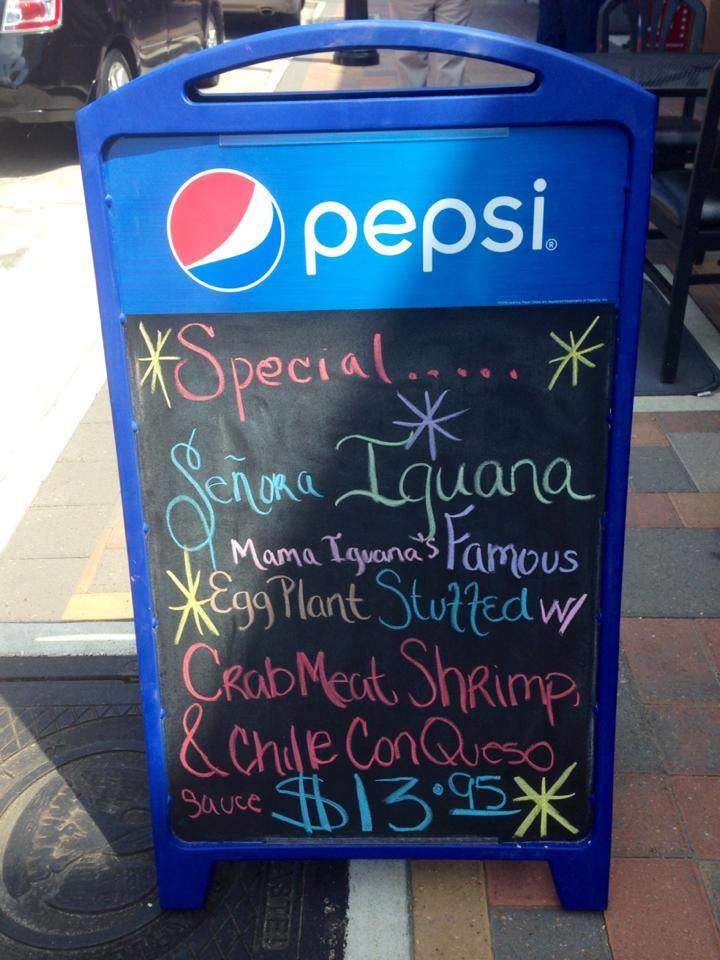 pepsi®
Special.....
Señora Iguana
Mama Iguana's Famous
Egg Plant Stuffed w/
Crab Meat, Shrimp,
& Chile Con Queso
Sauce $13.95